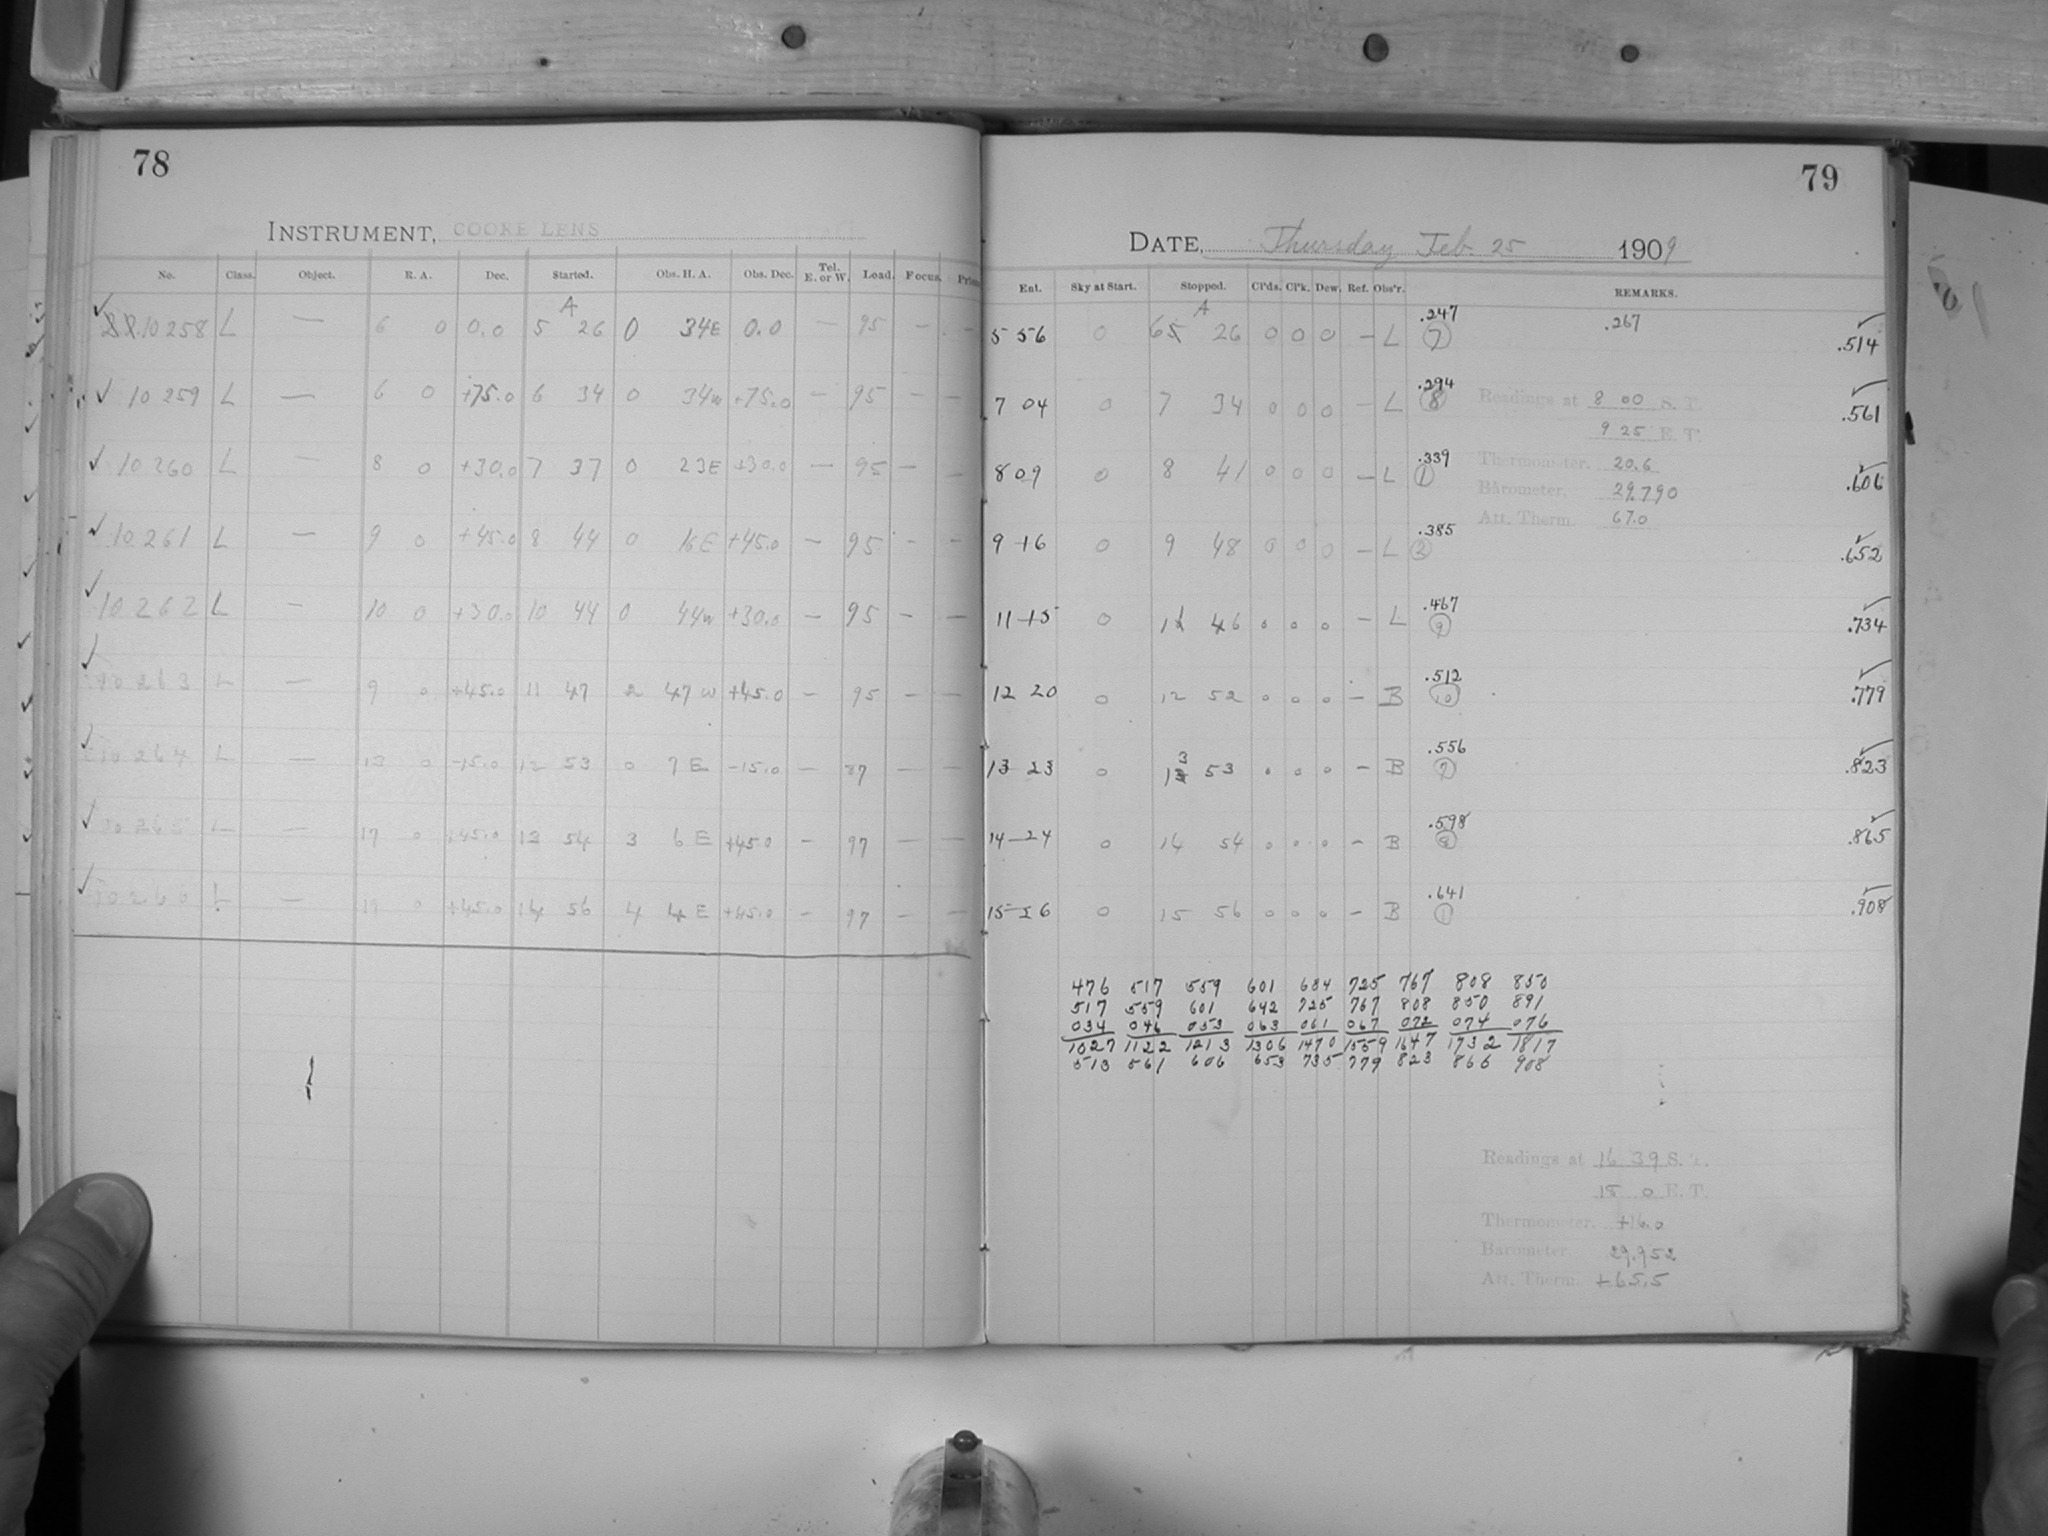 78
INSTRUMENT, COOKE LENS
No. Class. Object. R. A. Dec. Started. Obs. H. A. Obs. Dec. Tel. E. or W. Load. Focus.
A
10258 L — 6 0 0.0 5 26 0 34E 0.0 — 95 — —
10259 L — 6 0 +75.0 6 34 0 34W +75.0 — 95 — —
10260 L — 8 0 +30.0 7 37 0 23E +30.0 — 95 — —
10261 L — 9 0 +45.0 8 44 0 16E +45.0 — 95 — —
10262 L — 10 0 +30.0 10 44 0 44W +30.0 — 95 — —
10263 L — 9 0 +45.0 11 47 2 47W +45.0 — 95 — —
10264 L — 13 0 -15.0 12 53 0 7E -15.0 — 97 — —
10265 L — 17 0 +45.0 13 54 3 6E +45.0 — 97 — —
L — 0 +45.0 14 56 4 4E +45.0 — 97 — —
79
DATE, Thursday Feb. 25 1909
Ent. Sky at Start. Stopped. Cl'ds. Cl'k. Dew. Ref. Obs'r. REMARKS.
A .247 .267
5 56 0 6 26 0 0 0 — L 7 .514
.294
7 04 0 7 34 0 0 0 — L 8 Readings at 8 00 S. T. .561
9 25 E. T.
.339
8 09 0 8 41 0 0 0 — L 1 Thermometer. 20.6 .606
Barometer. 29.790
Att. Therm. 67.0
.385
9 16 0 9 48 0 0 0 — L 2 .652
.467
11 15 0 11 46 0 0 0 — L 9 .734
.512
12 20 0 12 52 0 0 0 — B 10 .779
.556
13 23 0 13 53 0 0 0 — B 7 .823
.598
14 24 0 14 54 0 0 0 — B 8 .865
.641
15 26 0 15 56 0 0 0 — B 1 .908
476 517 559 601 684 725 767 808 850
517 559 601 642 725 767 808 850 891
034 046 053 063 061 067 072 074 076
1027 1122 1213 1306 1470 1559 1647 1732 1817
513 561 606 653 735 779 823 866 908
Readings at 16 39 S. T.
18 0 E. T.
Thermometer. +16.0
Barometer. 29.952
Att. Therm. +65.5